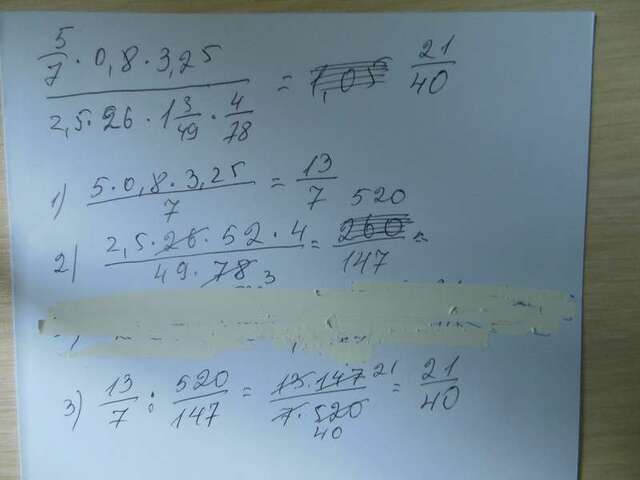 5/7 · 0,8 · 3,25 / 2,5 · 26 · 1 3/49 · 4/78 = 21/40
1) 5 · 0,8 · 3,25 / 7 = 13/7
2) 2,5 · 26 · 52 · 4 / 49 · 78 3 = 520 / 147 =
3) 13/7 : 520/147 = 13 · 147 21 / 7 · 520 40 = 21/40